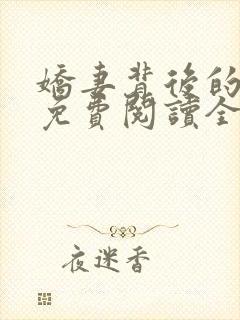 嬌妻背後的
免費閱讀全
夜迷香